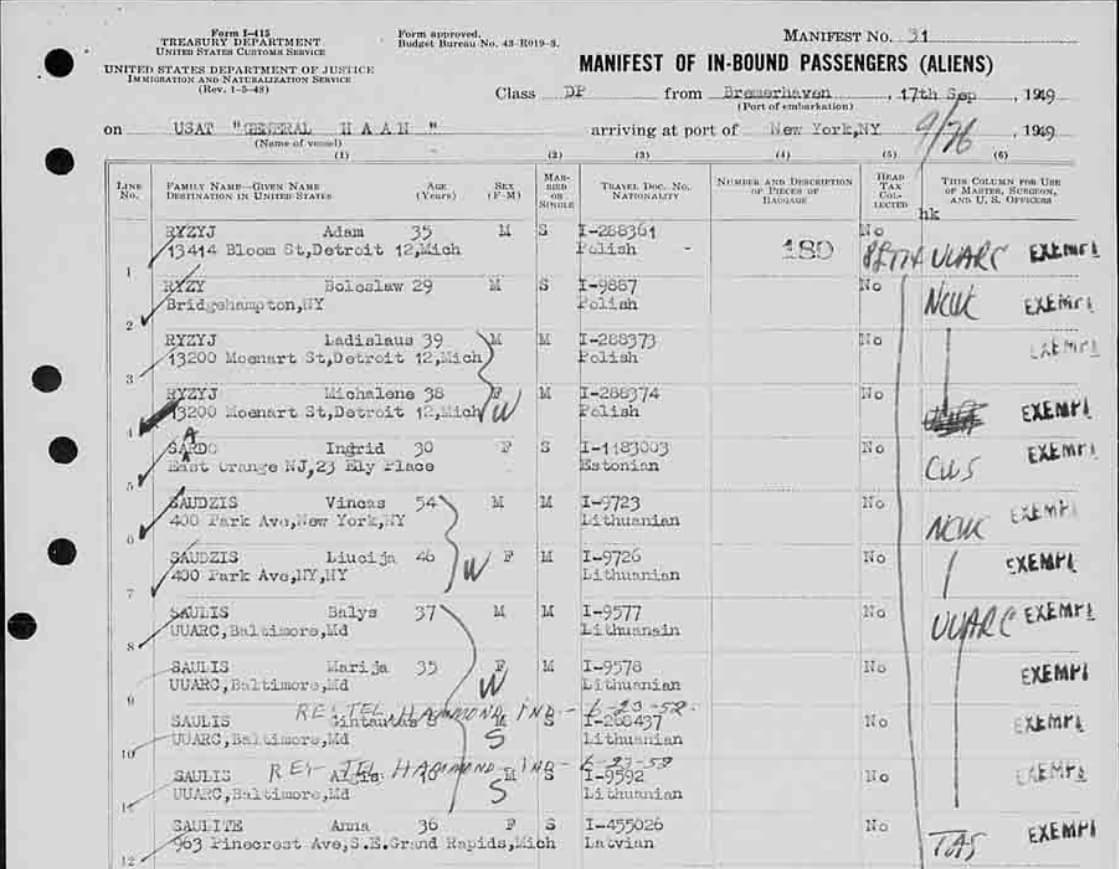 Form I-415
TREASURY DEPARTMENT
UNITED STATES CUSTOMS SERVICE
UNITED STATES DEPARTMENT OF JUSTICE
IMMIGRATION AND NATURALIZATION SERVICE
(Rev. 1-5-48)
Form approved.
Budget Bureau No. 43-R019-3.
MANIFEST NO. 31
MANIFEST OF IN-BOUND PASSENGERS (ALIENS)
Class DP from Bremerhaven, 17th Sep, 1949
(Port of embarkation)
on USAT "GENERAL HAAN" arriving at port of New York,NY 9/26, 1949
(Name of vessel)
(1) (2) (3) (4) (5) (6)
LINE No. FAMILY NAME—GIVEN NAME DESTINATION IN UNITED STATES AGE (Years) SEX (F-M) MARRIED OR SINGLE TRAVEL DOC. NO. NATIONALITY NUMBER AND DESCRIPTION OF PIECES OF BAGGAGE HEAD TAX COLLECTED THIS COLUMN FOR USE OF MASTER, SURGEON, AND U. S. OFFICERS
hk
RYZYJ Adam 35 M S I-288361 No
1 13414 Bloom St,Detroit 12,Mich Polish - 180 UUARC EXEMPT
RYZY Boleslaw 29 M S I-9887 No
2 Bridgehampton,NY Polish NCWC EXEMPT
RYZYJ Ladislaus 39 M M I-288373 No
3 13200 Moenart St,Detroit 12,Mich Polish EXEMPT
RYZYJ Michalene 38 F M I-288374 No
4 13200 Moenart St,Detroit 12,Mich W Polish EXEMPT
A
SARDO Ingrid 30 F S I-1183003 No
5 East Orange NJ,23 Ely Place Estonian CWS EXEMPT
SAUDZIS Vincas 54 M M I-9723 No
6 400 Park Ave,New York,NY Lithuanian NCWC EXEMPT
SAUDZIS Liucija 46 F M I-9726 No
7 400 Park Ave,NY,NY W Lithuanian EXEMPT
SAULIS Balys 37 M M I-9577 No
8 UUARC,Baltimore,Md Lithuanain UUARC EXEMPT
SAULIS Marija 35 F M I-9578 No
9 UUARC,Baltimore,Md W Lithuanian EXEMPT
RE: TEL HAMMOND IND - 6-23-58.
SAULIS Gintautas M S I-288437 No
10 UUARC,Baltimore,Md S Lithuanian EXEMPT
RE: TEL HAMMOND IND - 6-23-58
SAULIS M S I-9592 No
11 UUARC,Baltimore,Md S Lithuanian EXEMPT
SAULITE Anna 36 F S I-455026 No
12 963 Pinecrest Ave,S.E.Grand Rapids,Mich Latvian EXEMPT